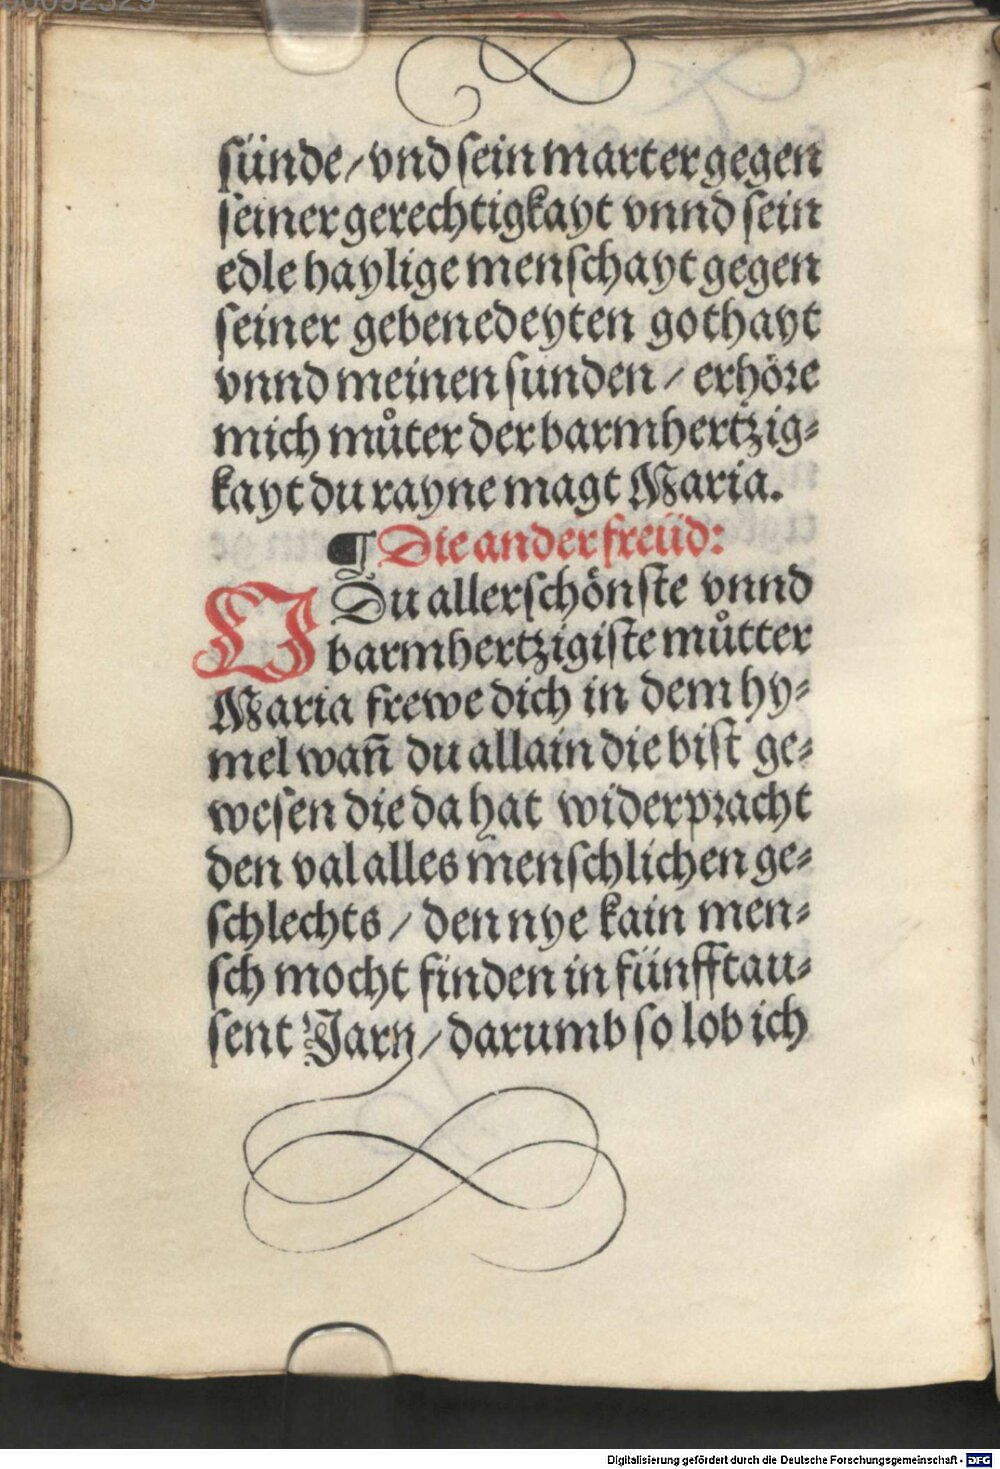 sünde/vnd sein marter gegen
seiner gerechtigkayt vnnd sein
edle haylige menschayt gegen
seiner gebenedeyten gothayt
vnnd meinen sunden/erhöre
mich můter der barmhertzig⸗
kayt du rayne magt Maria.
¶ Die ander freüd:
O Du allerschönste vnnd
barmhertzigiste můtter
Maria frewe dich in dem hy⸗
mel wañ du allain die bist ge⸗
wesen die da hat widerpracht
den val alles menschlichen ge⸗
schlechts/den nye kain men⸗
sch mocht finden in fünfftau⸗
sent Jarn/darumb so lob ich
Digitalisierung gefördert durch die Deutsche Forschungsgemeinschaft - DFG